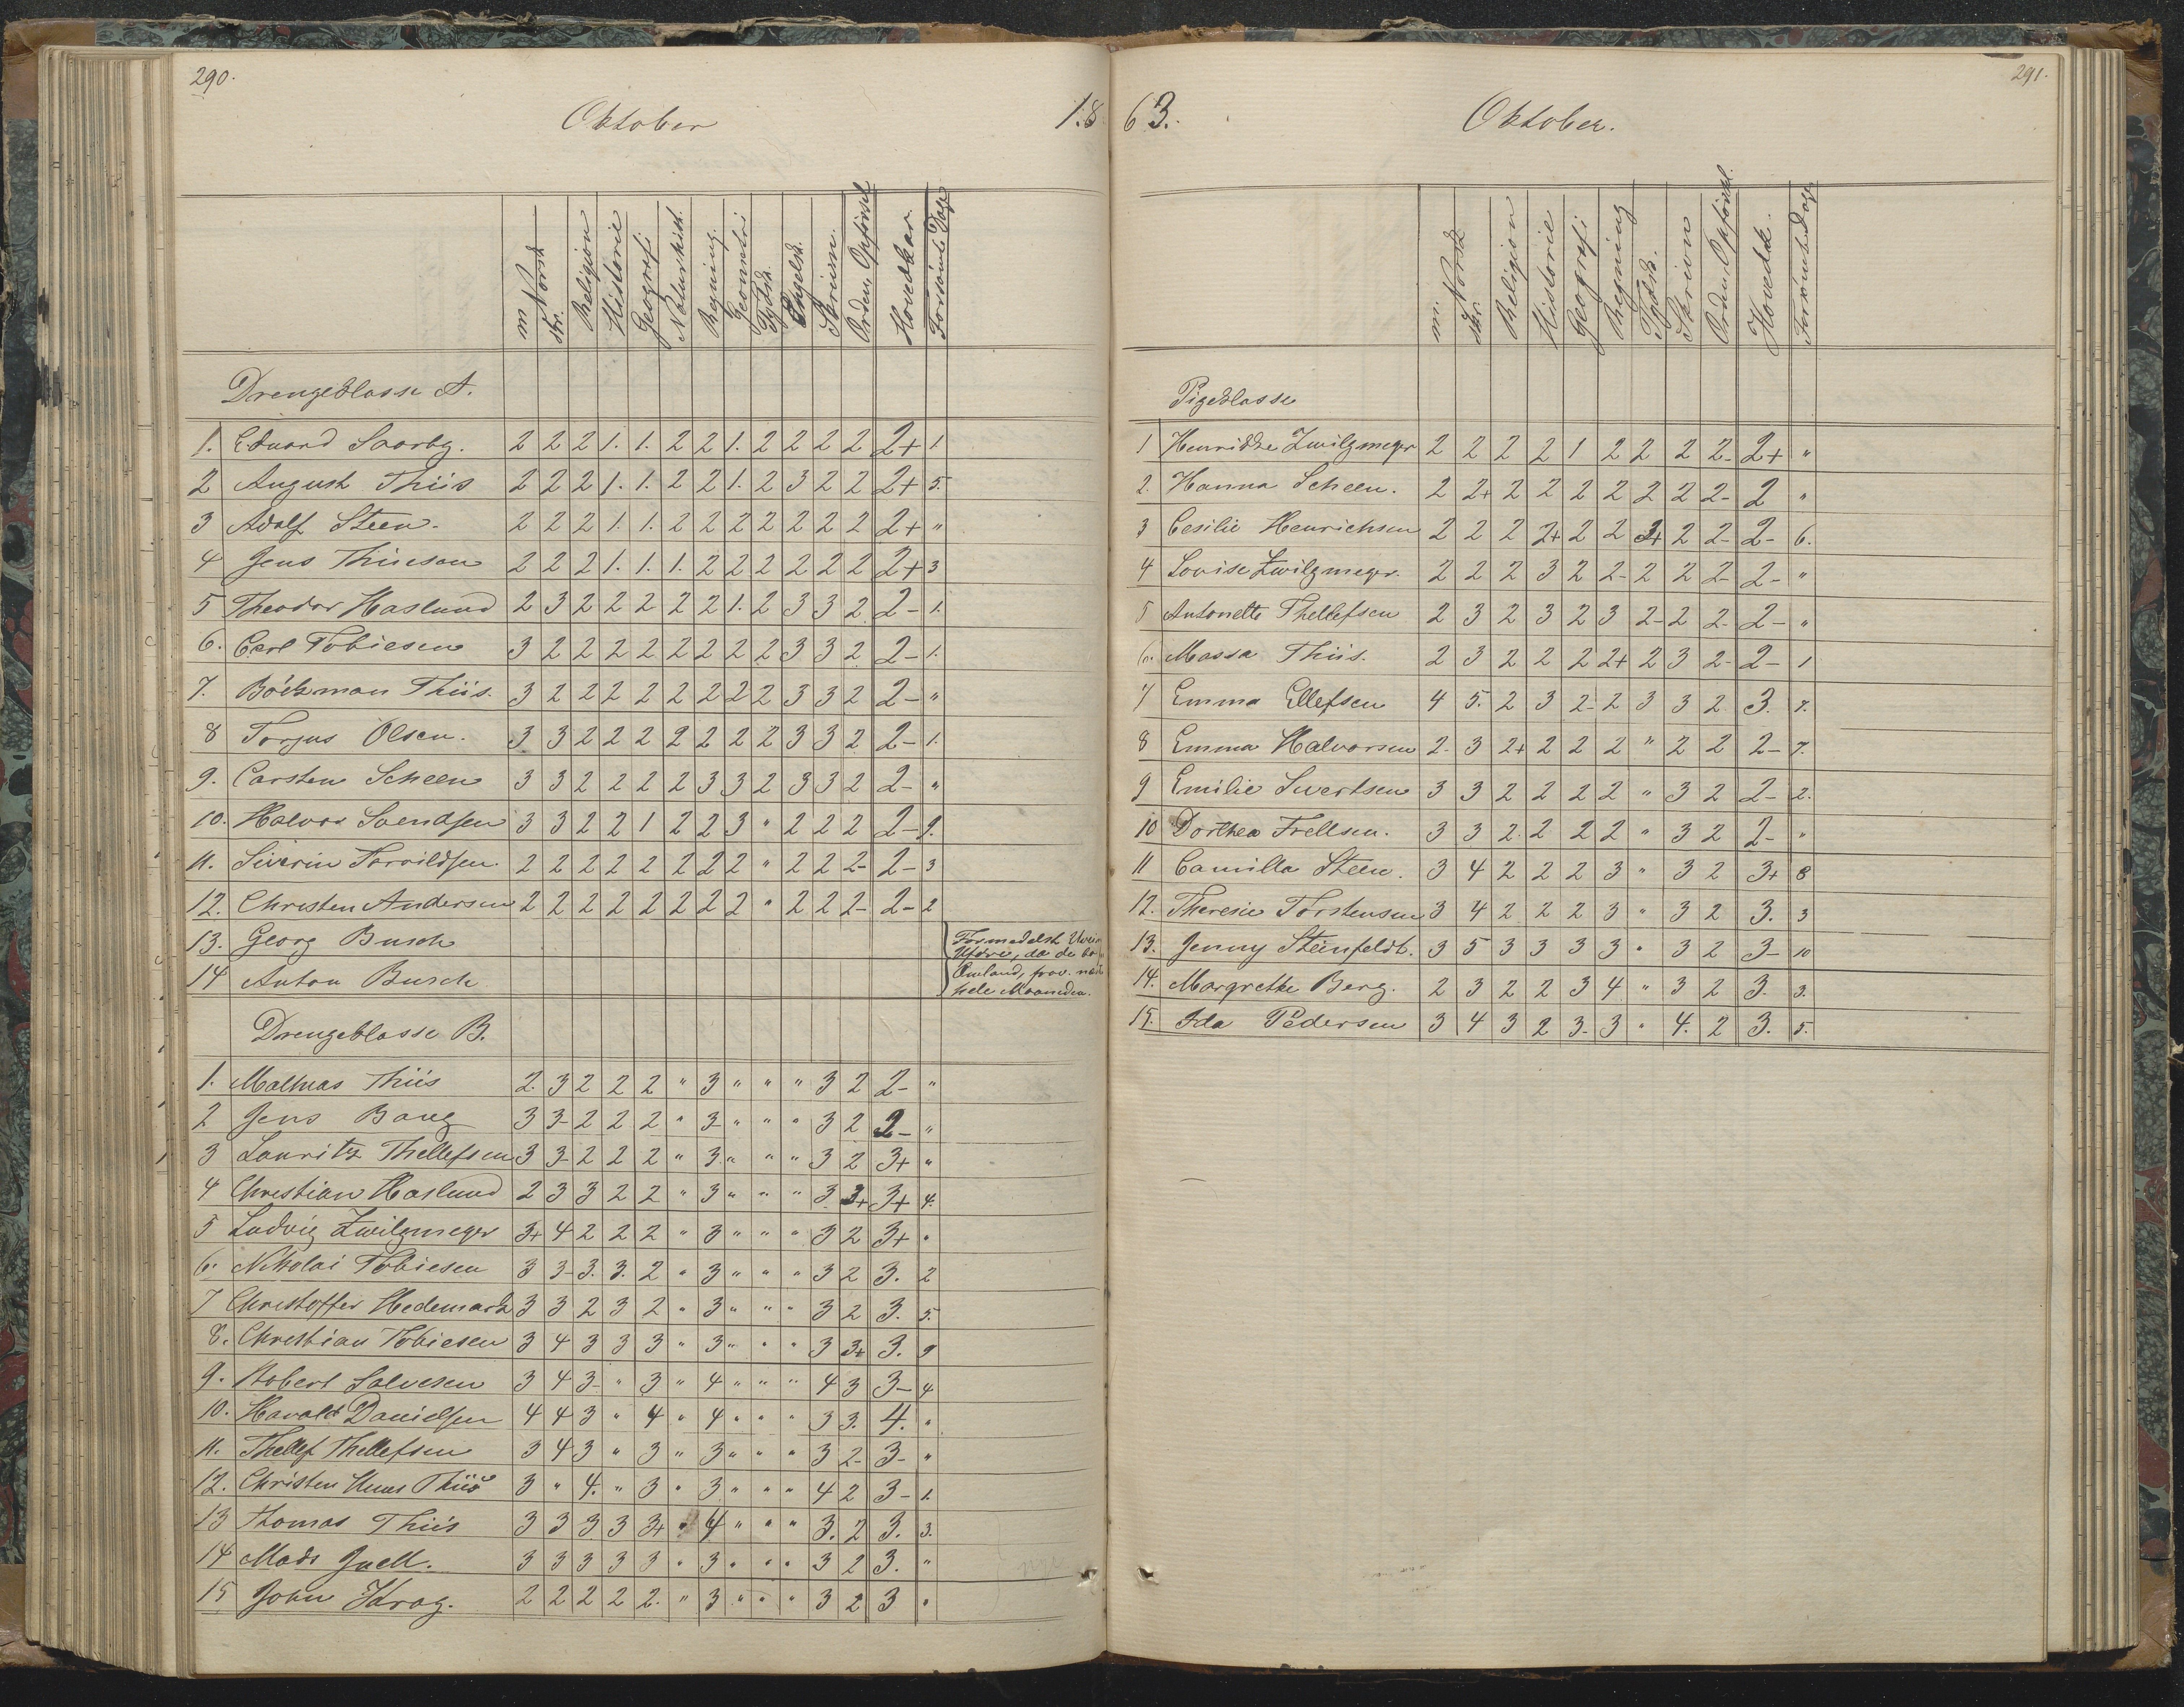 290.
Oktober
18
m Norsk skr. Religion Historie Geografi Naturhist. Regning. Geometri Tydsk Engelsk. Skrivn. Orden, Opførsel Hovedkar. Forsømte Dage
Drengeklasse A.
1. Eduard Saarbg. 2 2 2 1. 1. 2 2 1. 2 2 2 2 2+ 1
2 August Thiis 2 2 2 1. 1. 2 2 1. 2 3 2 2 2+ 5.
3 Adolf Steen. 2 2 2 1. 1. 2 2 2 2 2 2 2 2+ "
4 Jens Thiisen 2 2 2 1. 1. 1. 2 2 2 2 2 2 2+ 3
5 Theodor Haslund 2 3 2 2 2 2 2 1. 2 3 3 2 2- 1.
6. Carl Tobiesen 3 2 2 2 2 2 2 2 2 3 3 2 2- 1.
7. Böckman Thiis. 3 2 2 2 2 2 2 2 2 3 3 2 2- "
8 Torjus Olsen. 3 3 2 2 2 2 2 2 2 3 3 2 2- 1.
9. Carsten Scheen 3 3 2 2 2 2 3 3 2 3 3 2 2- "
10. Halvor Svendsen 3 3 2 2 1 2 2 3 " 2 2 2 2- 9.
11. Siverin Torvildsen. 2 2 2 2 2 2 2 2 " 2 2 2- 2- 3
12. Christen Andersen 2 2 2 2 2 2 2 2 " 2 2 2- 2- 2
13. Georg Busch
14 Anton Busch
Formedelst
da de
Omland, frav.
hele Maaneden.
Drengeklasse B.
1. Mathias Thiis 2. 3 2 2 2 " 3 " " " 3 2 2- "
2 Jens Bang 3 3- 2 2 2 " 3- " " " 3 2 2- "
3 Lauritz Thellefsen 3 3- 2 2 2 " 3. " " " 3 2 3+ "
4 Christian Haslund 2 3 3 2 2 " 3 " " " 3. 3+ 3+ 4.
5 Ludvig Zwilgmeyer 3+ 4 2 2 2 " 3 " " " 3 2 3+ "
6. Nikolai Tobiesen 3 3- 3. 3. 2 " 3 " " " 3 2 3. 2
7 Christoffer Hedemark 3 3 2 3 2 " 3 " " " 3 2 3. 5.
8. Christian Tobiesen 3 4 3 3 3 " 3 " " " 3 3+ 3. 9
9. Robert Salvesen 3 4 3- " 3 " 4 " " " 4 3 3- 4
10. Harald Danielsen 4 4 3 " 4 " 4 " " " 3 3. 4. "
11. Thellef Thellefsen 3 4 3 " 3 " 3 " " " 3 2- 3- "
12. Christen Thiis 3 " 4. " 3 " 3 " " " 4 2 3- 1.
13 Thomas Thiis 3 3 3 3 3+ " 4 " " " 3. 2 3. 3.
14 Mads Juell. 3 3 3 3 3 " 3 " " " 3 2 3. "
15 John Krog. 2 2 2 2 2. " 3 " " " 3 2 3 "
291.
63.
Oktober.
m. Norsk skr. Religion Historie Geografi Regning Tydsk. Skrivn Orden, Opførsel. Hovedk. Forsømte Dage
Pigeklasse
1 Henrikke Zwilgmeyer 2 2 2 2 1 2 2 2 2- 2+ "
2. Hanna Scheen. 2 2+ 2 2 2 2 2 2 2- 2 "
3 Cesilie Henrichsen 2 2 2 2+ 2 2 3+ 2 2- 2- 6.
4 Lovise Zwilgmeyer. 2 2 2 3 2 2- 2 2 2- 2- "
5 Antonette Thellefsen 2 3 2 3 2 3 2- 2 2- 2- "
6. Massa Thiis. 2 3 2 2 2 2+ 2 3 2- 2- 1
7 Emma Ellefsen 4 5. 2 3 2- 2 3 3 2 3. 7.
8 Emma Halvorsen 2- 3 2+ 2 2 2 " 2 2 2- 7.
9 Emilie Sivertsen 3 3 2 2 2 2 " 3 2 2- 2.
10 Dorthea Frellsen. 3 3 2. 2 2 2 " 3 2 2- "
11 Camilla Steen. 3 4 2 2 2 3 " 3 2 3+ 8
12. Theresie Torstensen 3 4 2 2 2 3 " 3 2 3. 3
13. Jenny Steinfeldt. 3 5 3 3 3 3 " 3 2 3- 10
14. Margrethe Berg. 2 3 2 2 3 4 " 3 2 3. 3.
15. Ida Pedersen 3 4 3 2 3- 3 " 4. 2 3. 5.